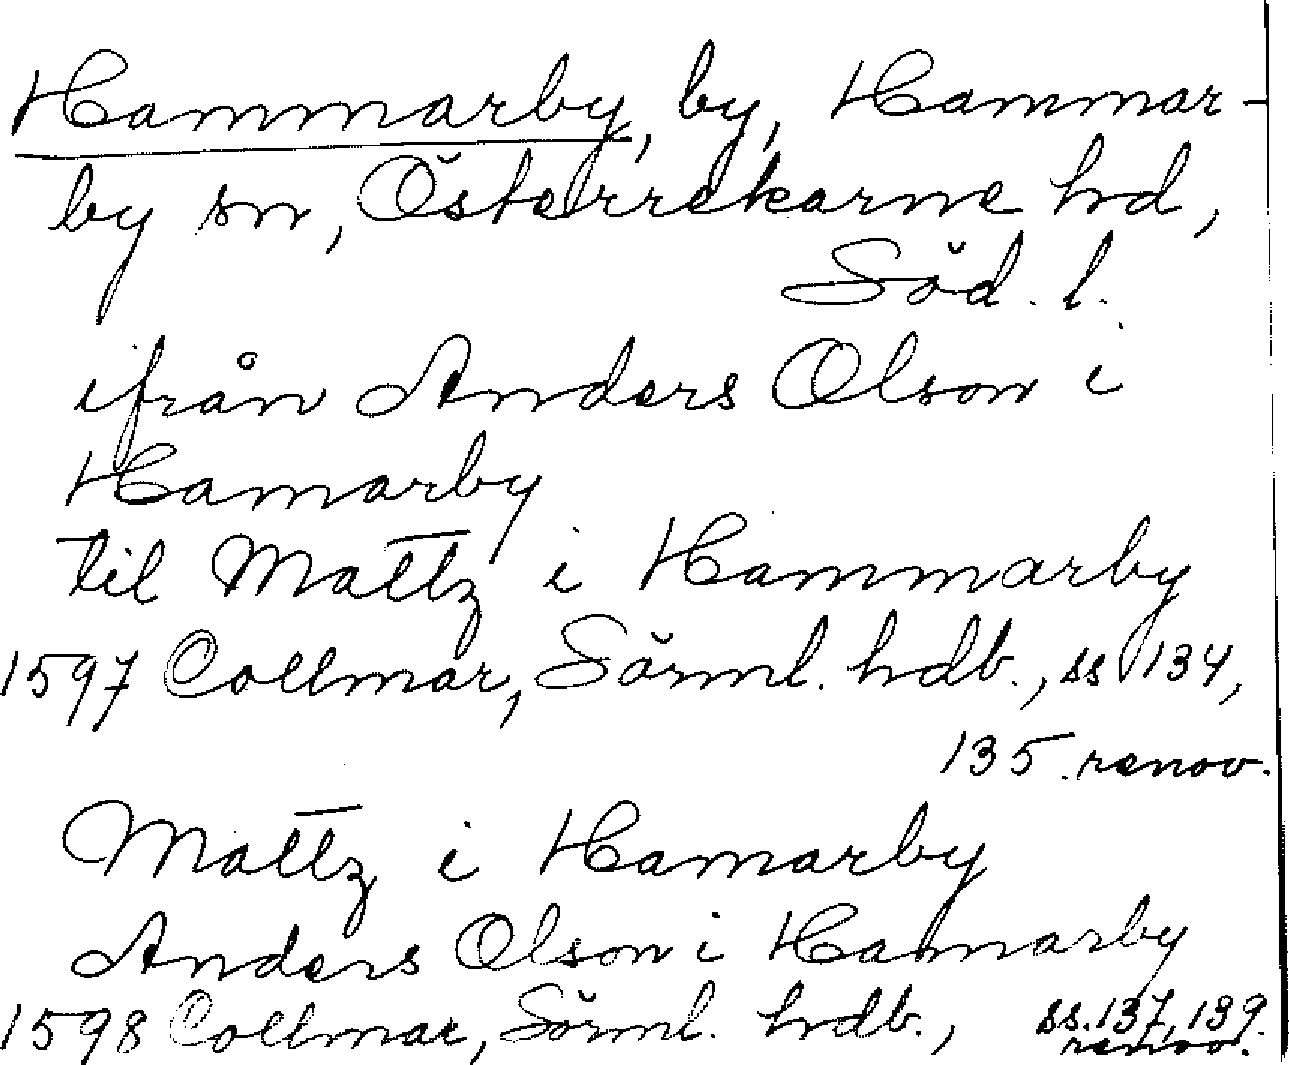 Hammarby, by, Hammar-
by sn, Österrekarne hd,
Söd. l.
ifrån Anders Olson i
Hamarby
til Mattz i Hammarby
1597 Collmar, Sörml. hdb., ss 134,
135. renov.
Mattz i Hamarby
Anders Olson i Hamarby
1598 Collmar, Sörml. hdb., ss. 137, 139.
renov.